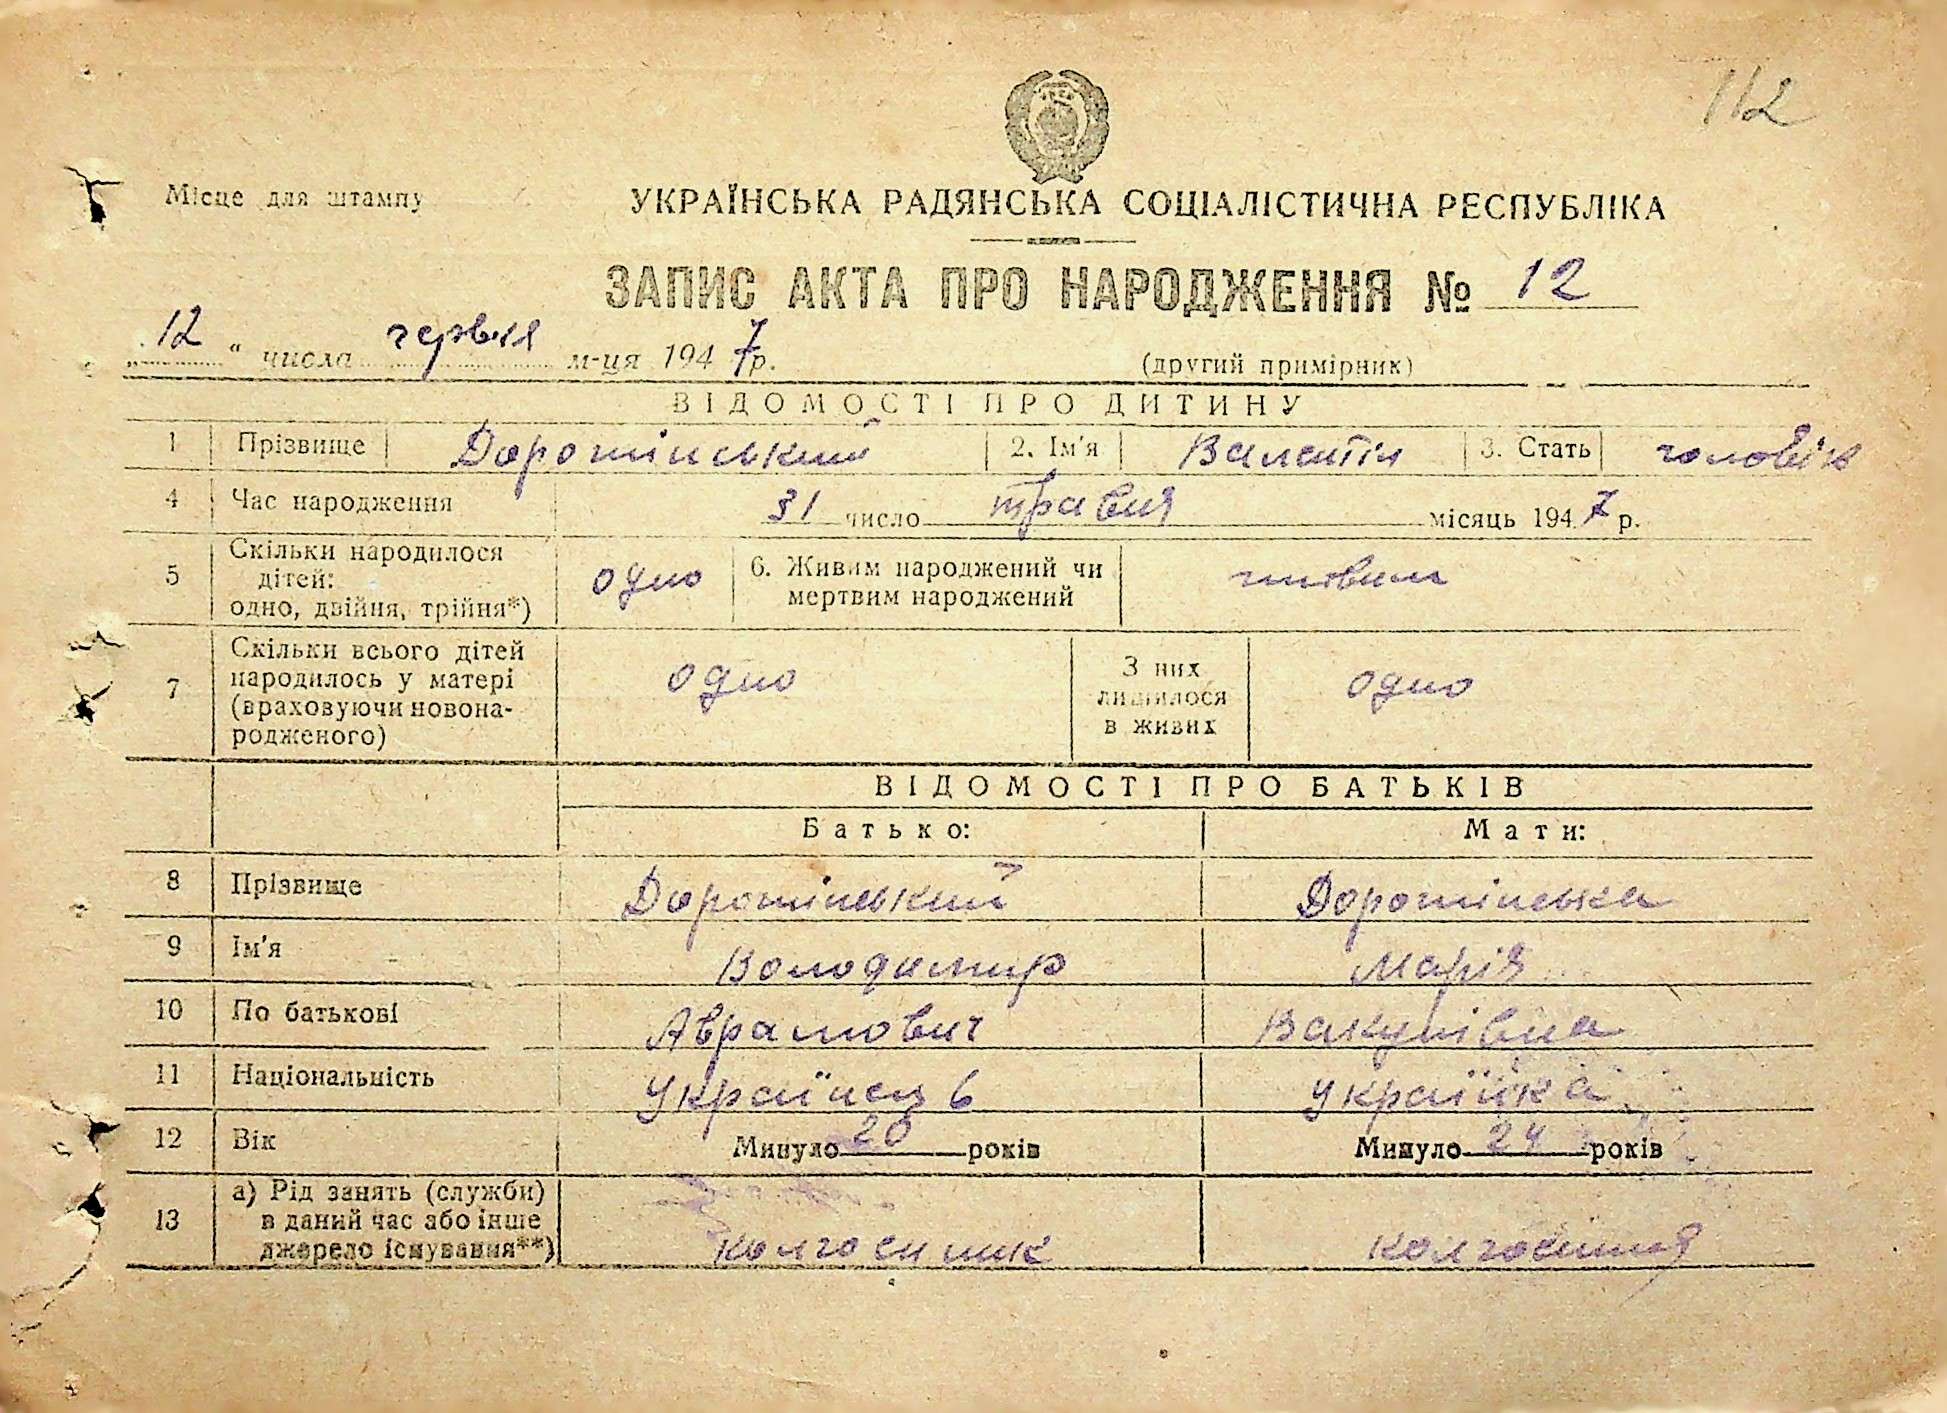 112
Місце для штампу
УКРАЇНСЬКА РАДЯНСЬКА СОЦІАЛІСТИЧНА РЕСПУБЛІКА
ЗАПИС АКТА ПРО НАРОДЖЕННЯ № 12
„12“ числа червня м-ця 1947 р.
(другий примірник)
ВІДОМОСТІ ПРО ДИТИНУ
1 Прізвище Доротінський 2. Ім'я Валентін 3. Стать чоловік
4 Час народження 31 число травня місяць 1947 р.
5 Скільки народилося
дітей:
одно, двійня, трійня*)
одно
6. Живим народжений чи
мертвим народжений
живим
7 Скільки всього дітей
народилось у матері
(враховуючи новона-
родженого)
одно
З них
лишилося
в живих
одно
ВІДОМОСТІ ПРО БАТЬКІВ
Батько: Мати:
8 Прізвище Доротінський Доротінська
9 Ім'я Володимир Марія
10 По батькові Аврамович Вакулівна
11 Національність Українець Українка
12 Вік Минуло 20 років Минуло 24 років
13 а) Рід занять (служби)
в даний час або інше
джерело існування**)
колгоспник колгоспниця